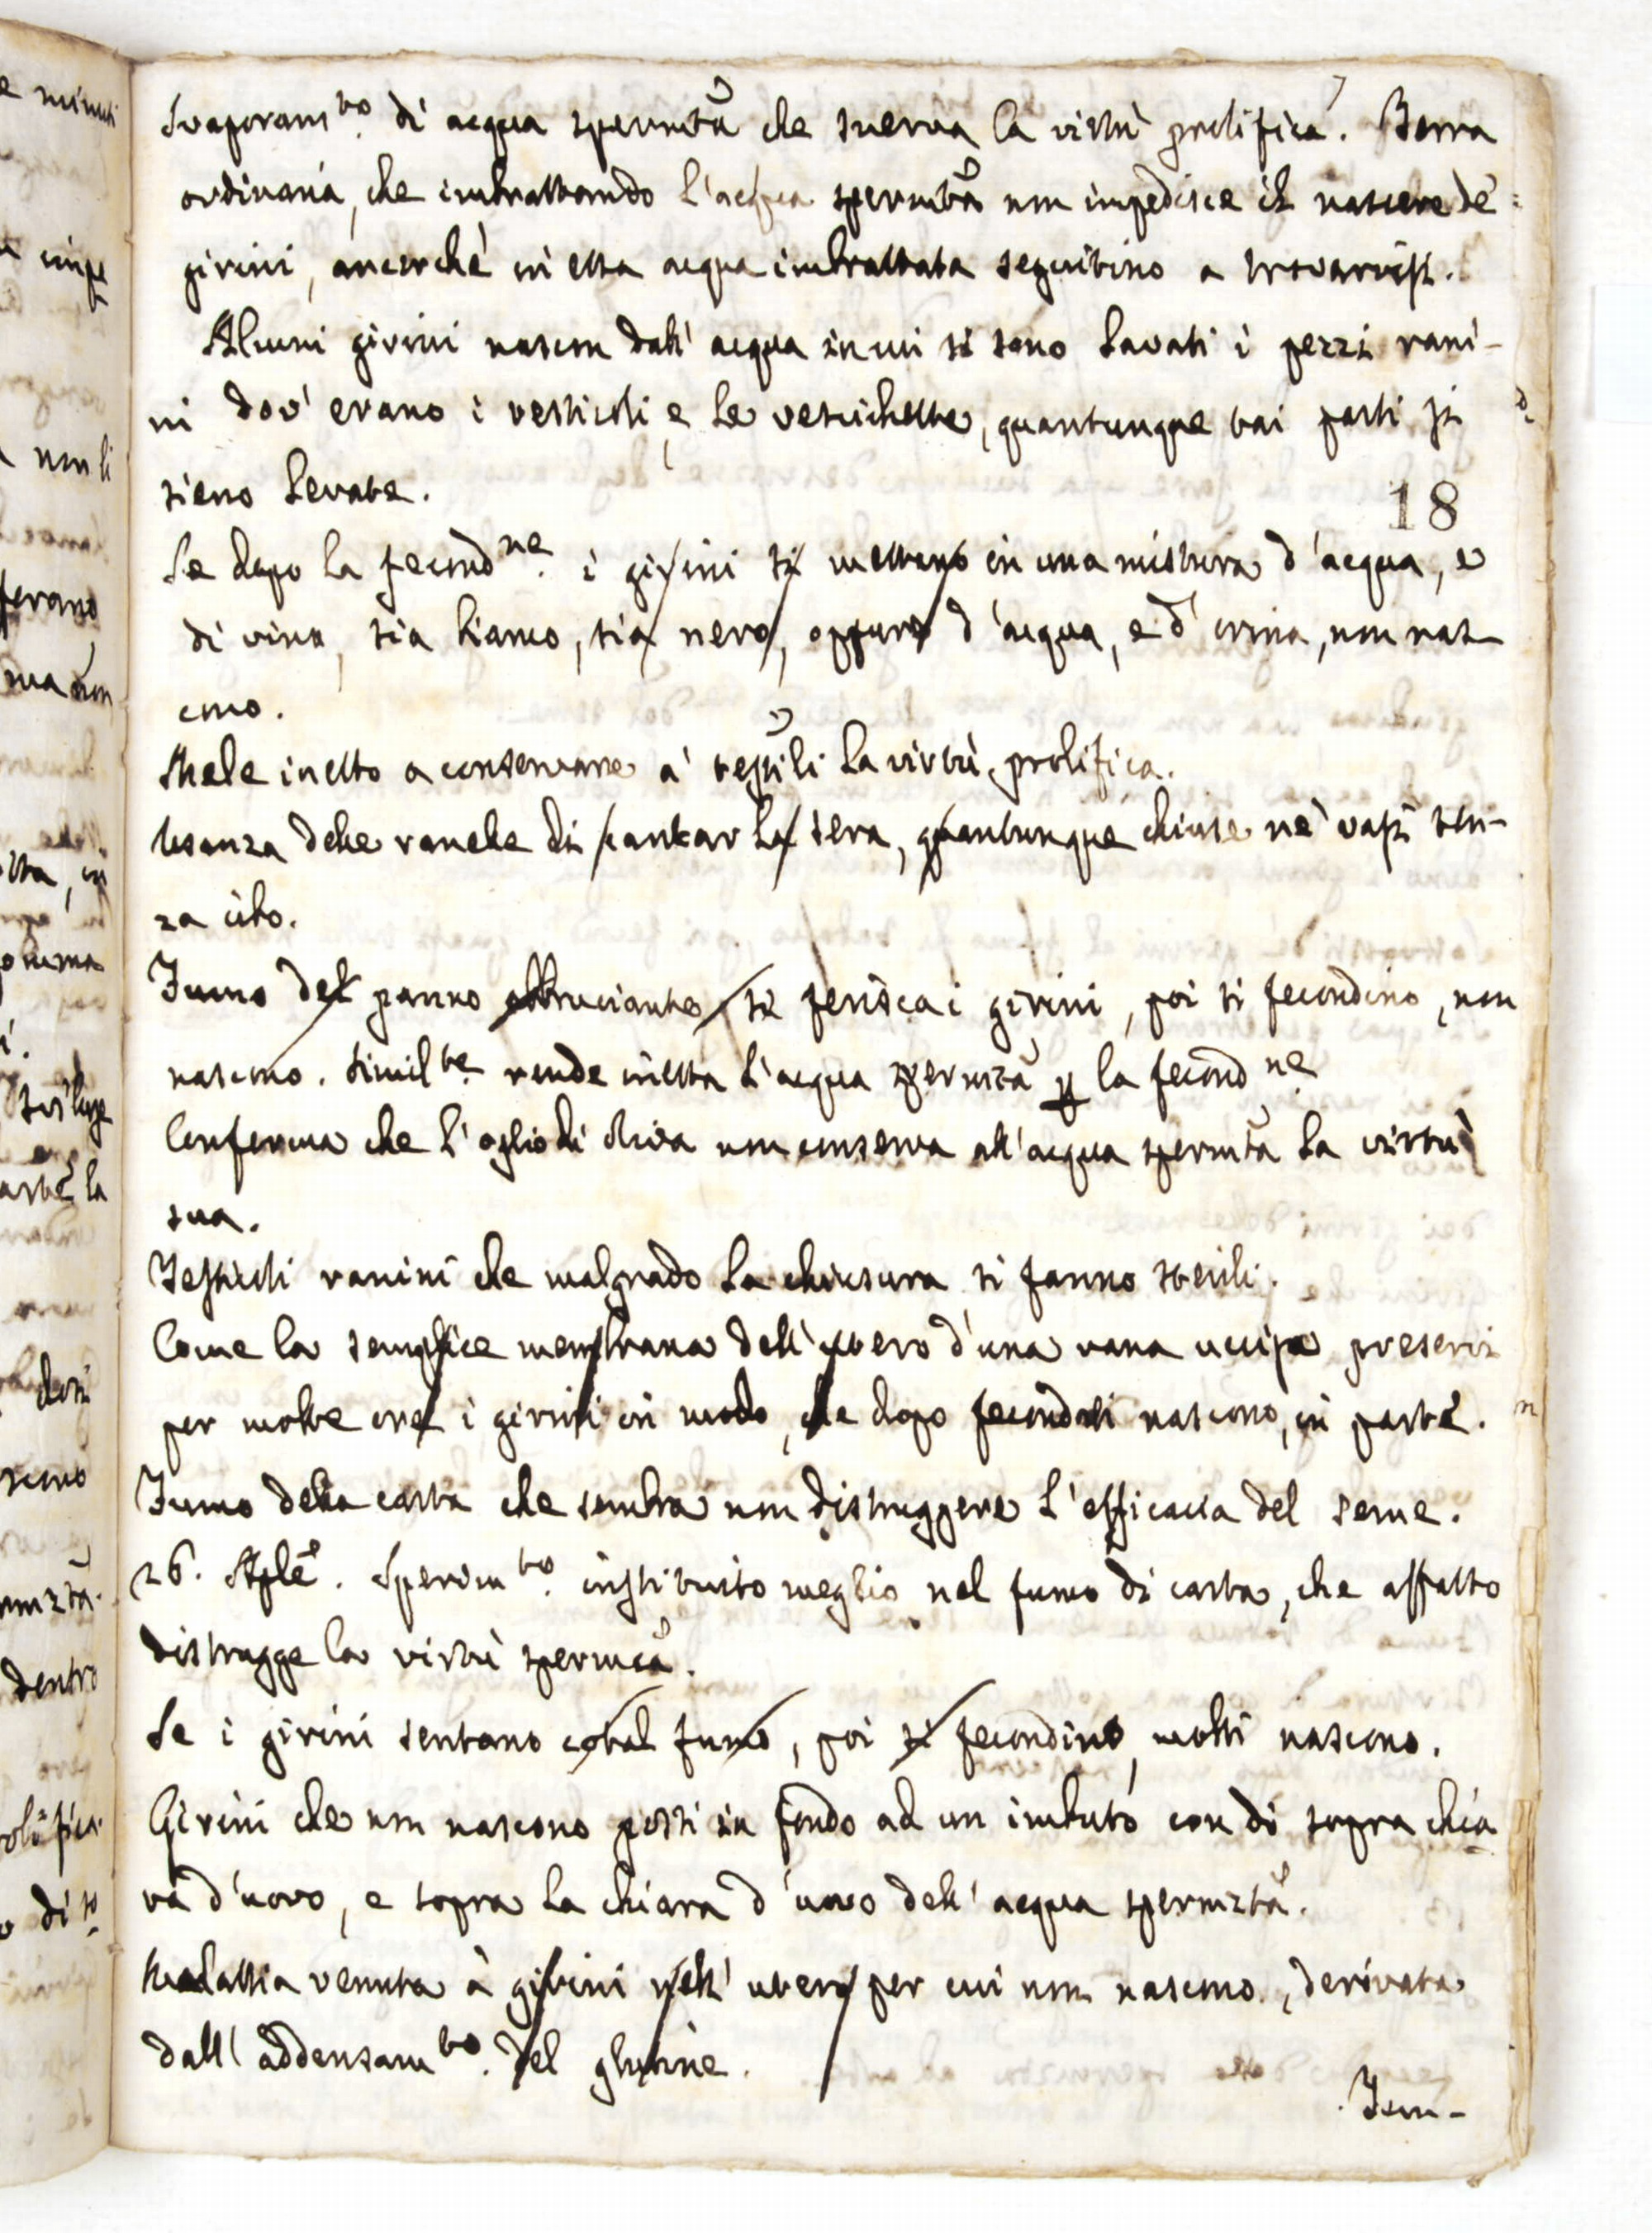 Svaporamto. di acqua spermta che snerva la virtù prolifica. Terra
ordinaria, che imbrattando l'acqua spermta non impedisce il nascere de'
girini, ancorchè in essa acqua imbrattata seguitino a trovarsi.
Alcuni girini nascon dall' acqua in cui si sono lavati i pezzi rani-
ni dov' erano i testicoli e le vescichette, quantunque tai parti si
sieno levate.
18
Se dopo la fecondne. i girini si mettano in una mistura d'acqua, e
di vino, sia bianco, sia nero, oppure d'acqua, e d'orina, non nas-
cono.
Mele inetto a conservare a' testili la virtù prolifica.
Usanza delle ranelle di cantar la sera, quantunque chiuse ne' vasi sen-
za cibo.
Fumo del panno abbruciante si ferisca i girini, poi si fecondino, non
nascono. Similte. rende inetta l'acqua spermta p la fecondne.
Conferma che l'oglio di oliva non conserva all'acqua spermta la virtù
sua.
Testicoli ranini che malgrado la chiusura si fanno sterili.
Come la semplice membrana dell'utero d'una rana uccisa preservi
per molte ore i girini in modo, che dopo fecondati nascono, in parte.
Fumo della carta che sembra non distruggere l'efficacia del seme.
26. Aple. Sperimto. instituito meglio nel fumo di carta, che affatto
distrugge la virtù spermca.
Se i girini sentano cotal fumo, poi si fecondino, molti nascono.
Girini che non nascono posti in fondo ad un imbuto con di sopra chia
ra d'uovo, e sopra la chiara d'uovo dell' acqua spermta.
Malattia venuta a' girini nell' utero per cui non nascono, derivata
dall' addensamto. del glutine.